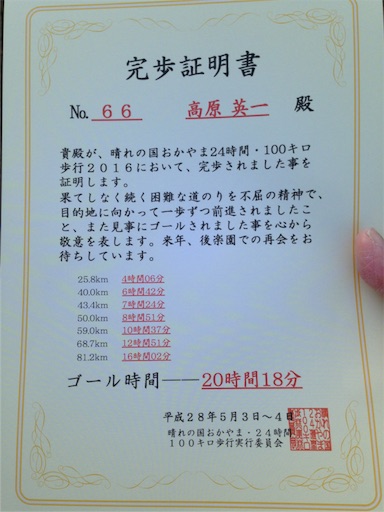 完歩証明書
No. 66 高原 英一 殿
貴殿が、晴れの国おかやま24時間・100キロ
歩行2016において、完歩されました事を
証明します。
果てしなく続く困難な道のりを不屈の精神で、
目的地に向かって一歩ずつ前進されましたこ
と、また見事にゴールされました事を心から
敬意を表します。来年、後楽園での再会をお
待ちしています。
25.8km 4時間06分
40.0km 6時間42分
43.4km 7時間24分
50.0km 8時間51分
59.0km 10時間37分
68.7km 12時間51分
81.2km 16時間02分
ゴール時間――20時間18分
平成28年5月3日~4日
晴れの国おかやま・24時間
100キロ歩行実行委員会